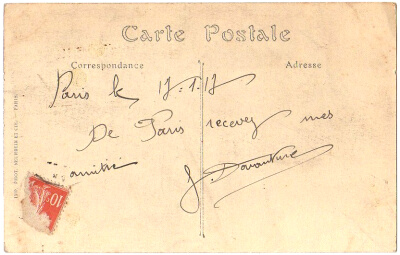 Carte Postale
Correspondance
Adresse
Paris le 17.1.17
De Paris recevez mes
amitié
10